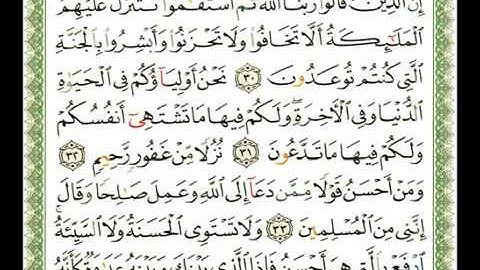 إِنَّ ٱلَّذِينَ قَالُوا۟ رَبُّنَا ٱللَّهُ ثُمَّ ٱسْتَقَٰمُوا۟ تَتَنَزَّلُ عَلَيْهِمُ
ٱلْمَلَٰٓئِكَةُ أَلَّا تَخَافُوا۟ وَلَا تَحْزَنُوا۟ وَأَبْشِرُوا۟ بِٱلْجَنَّةِ
ٱلَّتِى كُنتُمْ تُوعَدُونَ ٣٠ نَحْنُ أَوْلِيَآؤُكُمْ فِى ٱلْحَيَوٰةِ
ٱلدُّنْيَا وَفِى ٱلْءَاخِرَةِ ۖ وَلَكُمْ فِيهَا مَا تَشْتَهِىٓ أَنفُسُكُمْ
وَلَكُمْ فِيهَا مَا تَدَّعُونَ ٣١ نُزُلًا مِّنْ غَفُورٍ رَّحِيمٍ ٣٢
وَمَنْ أَحْسَنُ قَوْلًا مِّمَّن دَعَآ إِلَى ٱللَّهِ وَعَمِلَ صَٰلِحًا وَقَالَ
إِنَّنِى مِنَ ٱلْمُسْلِمِينَ ٣٣ وَلَا تَسْتَوِى ٱلْحَسَنَةُ وَلَا ٱلسَّيِّئَةُ
ٱدْفَعْ بِٱلَّتِى هِىَ أَحْسَنُ فَإِذَا ٱلَّذِى بَيْنَكَ وَبَيْنَهُۥ عَدَٰوَةٌ كَأَنَّهُۥ